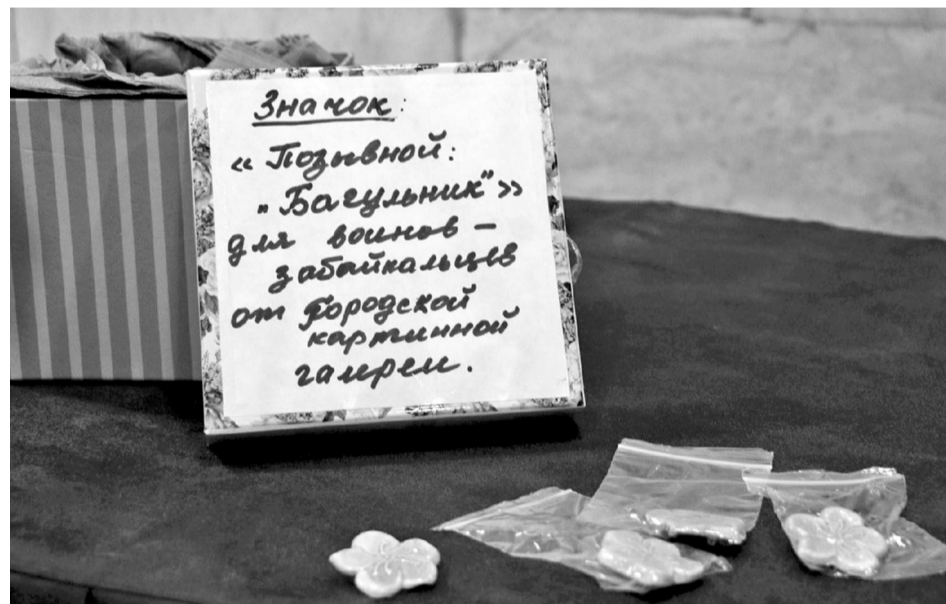 Значок:
« Позывной:
„Багульник" »
для воинов –
забайкальцев
от Городской
картинной
галереи.